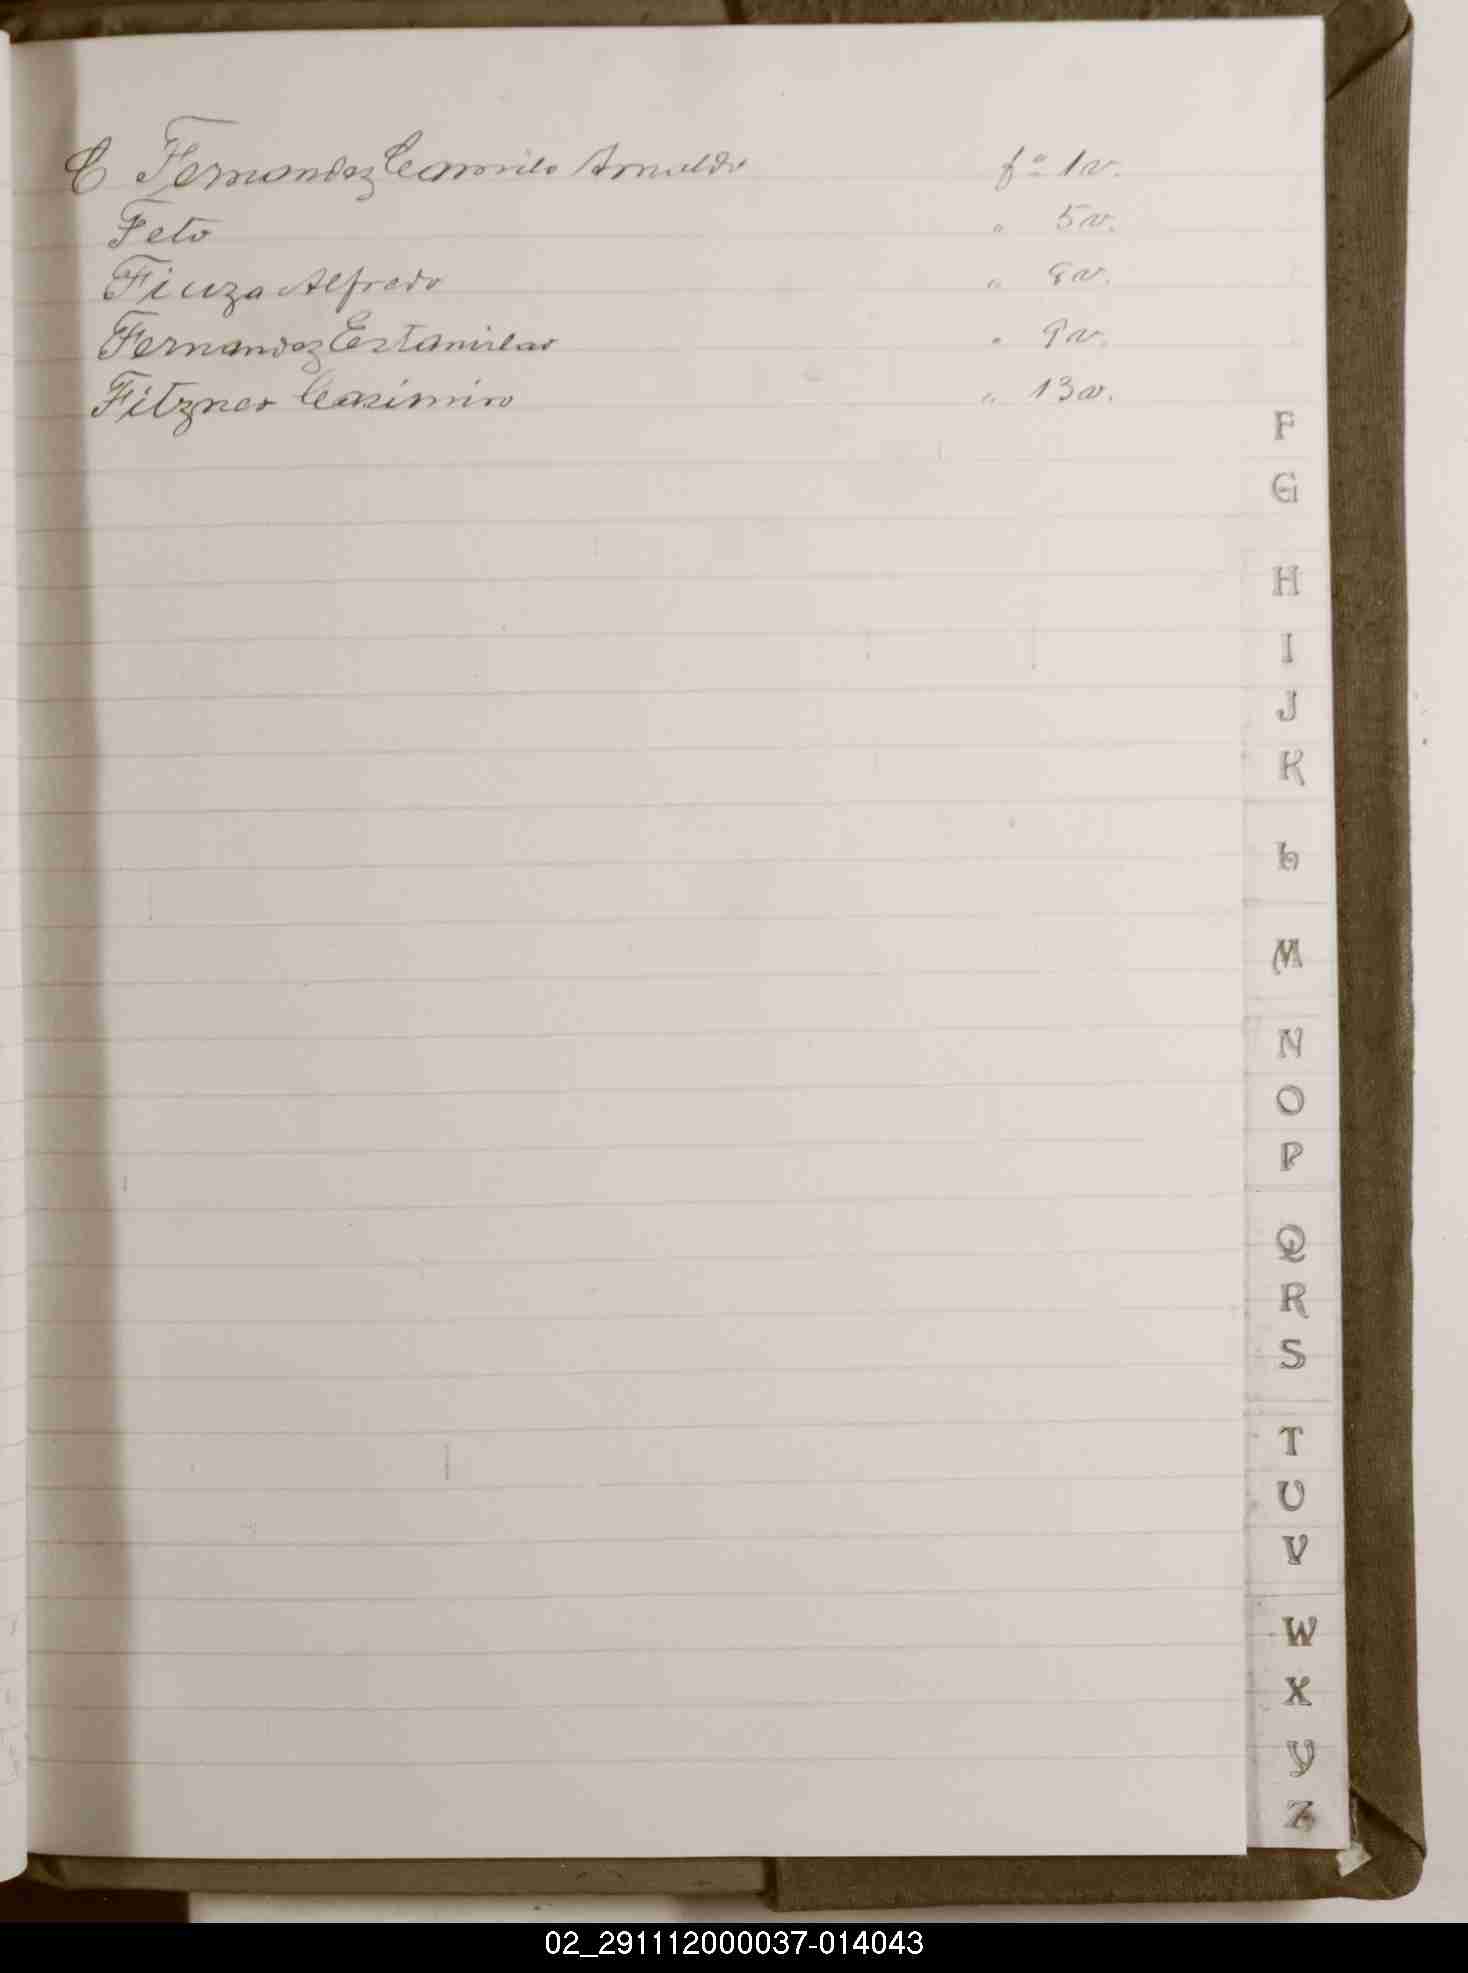 C Fernandez Camilo Arnaldo fº 1v.
Feto " 5v.
Fiuza Alfredo " 8v.
Fernandez Estanislao " 9v.
Fitzner Casimiro " 13v.
F
G
H
I
J
K
L
M
N
O
P
Q
R
S
T
U
V
W
X
Y
Z
02_291112000037-014043